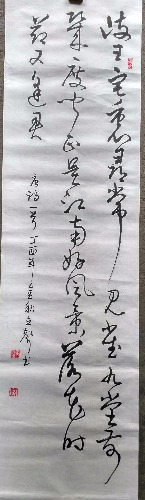 岐王宅里寻常见崔九堂前
几度闻正是江南好风景落花时
节又逢君
唐诗一首丁酉年